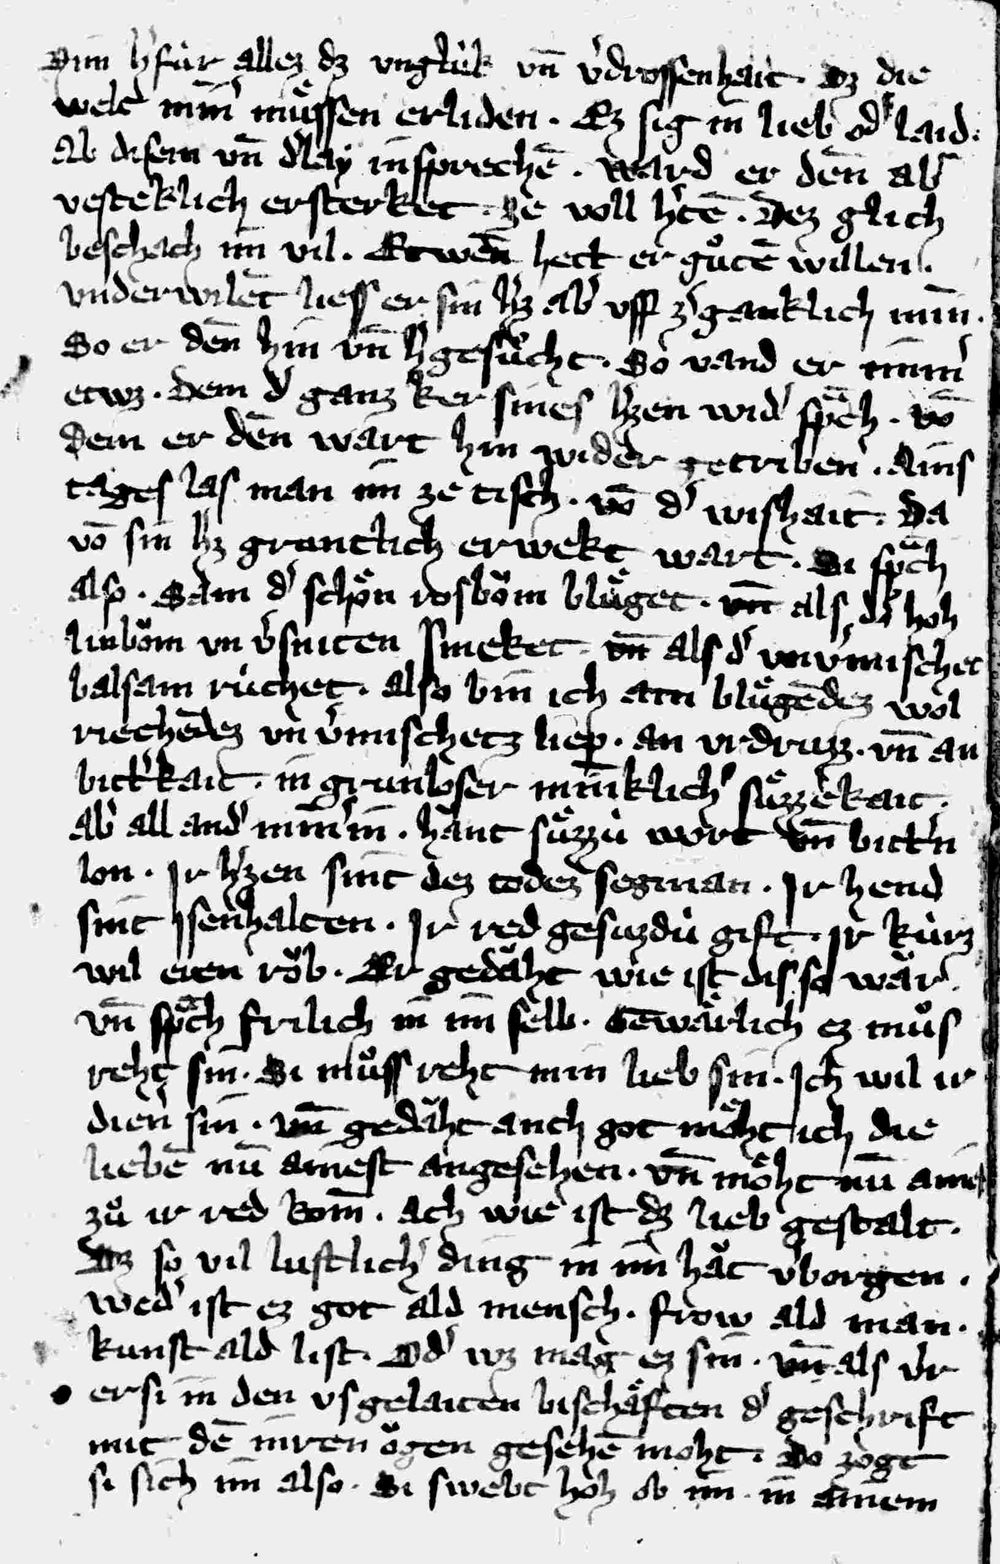 Dim h͛ für allez dz vnglük vn̄ v͛drossenhait. Dz die
welt min͛ muͤssen erliden. Ez sig in lieb od͛ laid.
Ab disem vn̄ d͛lay insprechē. Ward er den̄ ab͛
vesteklich ersterket. Dez glich
beschach im̄ vil. Etwen̄ hett er guͦtē willen.
vnderwilēt liess er sin h͛z ab͛ vff z͛ganklich min̄.
So er den̄ hin vn̄ h͛ gesuͦcht. So vand er nim͛
etwz. Dem d͛ ganz ker sines h͛zen wid͛ spͣch. vō
Dem er den̄ wart hin wider getriben. Ains
tages las man im̄ ze tisch. vō d͛ wishait. Da
vō sin h͛z gruntlich erwekt wart. Si spͣch
also. Sam d͛ schön rosboͮm bluͤget. vn̄ als d͛ hoh
liboͮm vn v͛sniten smeket. vn̄ als d͛ vnv͛mischet
balsam rüchet. also bin ich ain bluͤgēdez wol
riechēdez vn v͛mischetz liep. an vrdruzz. vn̄ an
bitt͛kait. in grunloser minklich͛ suͤzzekait.
Ab͛ all and͛ min͛in. hant suͤzzü wort vn̄ bitt͛n
lon. Ir h͛zen sint dez todez segman. Ir hend
sint Isenhalten. Ir red gesuzdü gift. Ir kürz
wil eren roͮb. Er gedaͮht wie ist dis so war.
vn̄ spͣch frilich in im̄ selb. Gewaͤrlich ez muͦs
reht sin. Si muͦss reht min lieb sin. Ich wil ir
dien͛ sin. vn̄ gedaͮht ach got moͤht ich die
liebē nu ainest angesehen. vn̄ moͤht nu ainest
zuͦ ir red kom̄. Ach wie ist dz lieb gestalt.
Daz so vil lustlich͛ ding in im̄ haͮt v͛borgen.
wed͛ ist ez got ald mensch. frow ald man.
kunst ald list. Od͛ wz mag ez sin. vn̄ als v͛r
er si in den vsgelaiten bischaͤften d͛ geschrift
mit dē inren oͮgen gesehē moht. Do zogt
si sich im̄ also. Si swebt hoh ob im̄. in ainem